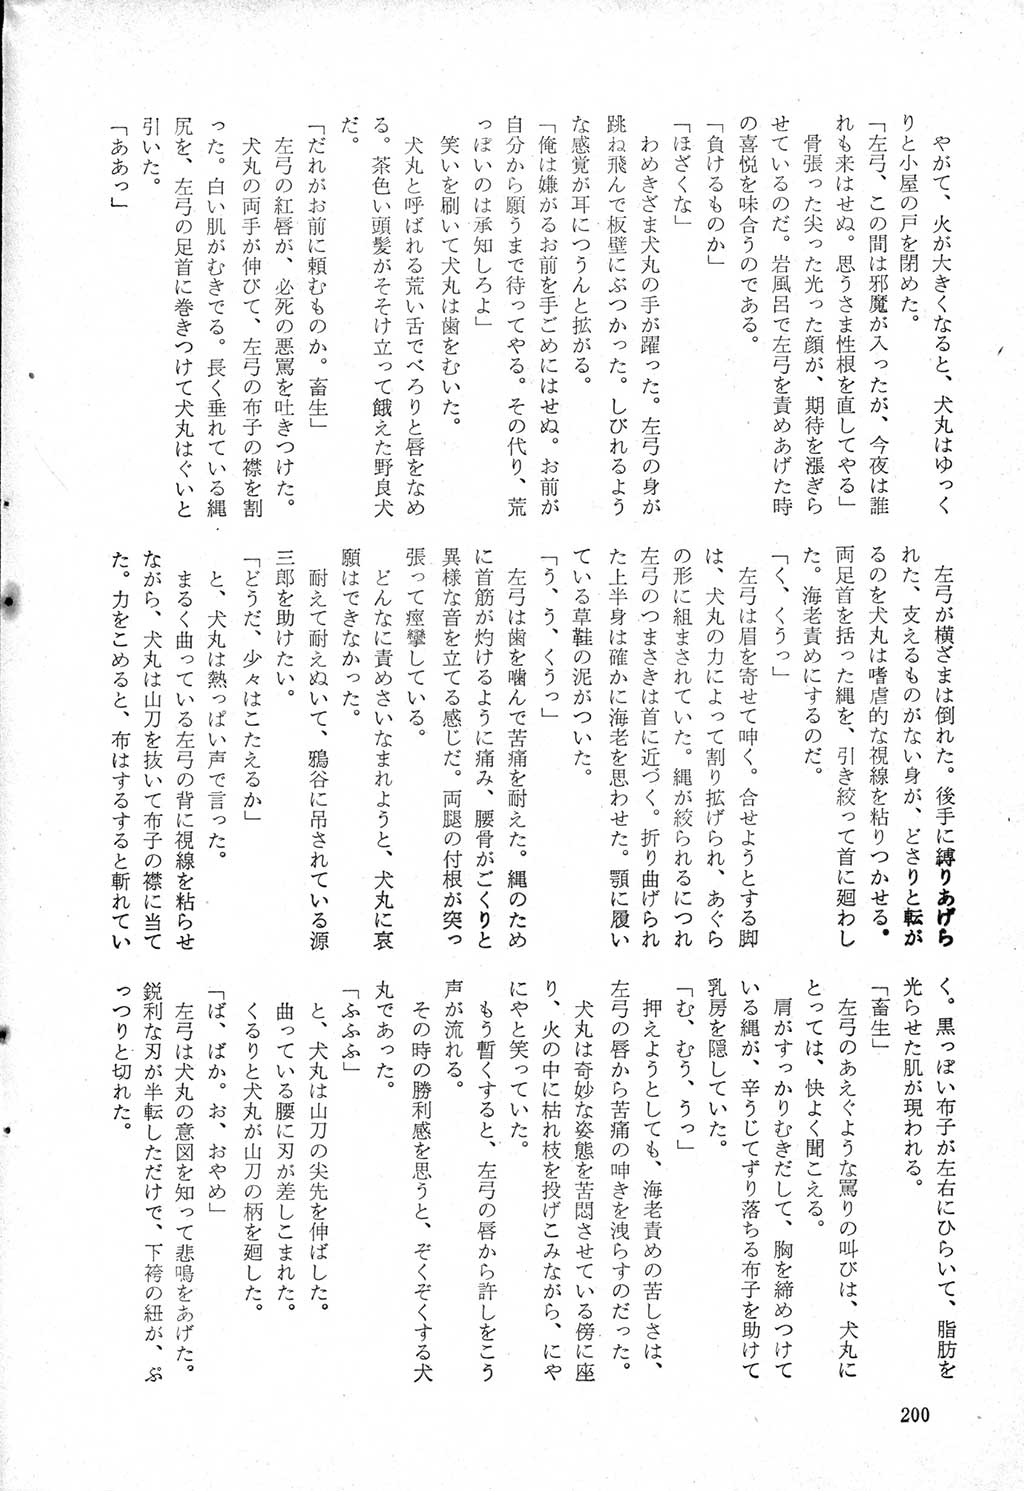 やがて、火が大きくなると、犬丸はゆっく
りと小屋の戸を閉めた。
「左弓、この間は邪魔が入ったが、今夜は誰
れも来はせぬ。思うさま性根を直してやる」
骨張った尖った光った顔が、期待を漲ぎら
せているのだ。岩風呂で左弓を責めあげた時
の喜悦を味合うのである。
「負けるものか」
「ほざくな」
わめきざま犬丸の手が躍った。左弓の身が
跳ね飛んで板壁にぶつかった。しびれるよう
な感覚が耳につうんと拡がる。
「俺は嫌がるお前を手ごめにはせぬ。お前が
自分から願うまで待ってやる。その代り、荒
っぽいのは承知しろよ」
笑いを刷いて犬丸は歯をむいた。
犬丸と呼ばれる荒い舌でべろりと唇をなめ
る。茶色い頭髪がそそけ立って餓えた野良犬
だ。
「だれがお前に頼むものか。畜生」
左弓の紅唇が、必死の悪罵を吐きつけた。
犬丸の両手が伸びて、左弓の布子の襟を割
った。白い肌がむきでる。長く垂れている縄
尻を、左弓の足首に巻きつけて犬丸はぐいと
引いた。
「ああっ」
左弓が横ざまは倒れた。後手に縛りあげら
れた、支えるものがない身が、どさりと転が
るのを犬丸は嗜虐的な視線を粘りつかせる。
両足首を括った縄を、引き絞って首に廻わし
た。海老責めにするのだ。
「く、くうっ」
左弓は眉を寄せて呻く。合せようとする脚
は、犬丸の力によって割り拡げられ、あぐら
の形に組まされていた。縄が絞られるにつれ
左弓のつまさきは首に近づく。折り曲げられ
た上半身は確かに海老を思わせた。顎に履い
ている草鞋の泥がついた。
「う、う、くうっ」
左弓は歯を噛んで苦痛を耐えた。縄のため
に首筋が灼けるように痛み、腰骨がごくりと
異様な音を立てる感じだ。両腿の付根が突っ
張って痙攣している。
どんなに責めさいなまれようと、犬丸に哀
願はできなかった。
耐えて耐えぬいて、鴉谷に吊されている源
三郎を助けたい。
「どうだ、少々はこたえるか」
と、犬丸は熱っぱい声で言った。
まるく曲っている左弓の背に視線を粘らせ
ながら、犬丸は山刀を抜いて布子の襟に当て
た。力をこめると、布はするすると斬れてい
く。黒っぽい布子が左右にひらいて、脂肪を
光らせた肌が現われる。
「畜生」
左弓のあえぐような罵りの叫びは、犬丸に
とっては、快よく聞こえる。
肩がすっかりむきだして、胸を締めつけて
いる縄が、辛うじてずり落ちる布子を助けて
乳房を隠していた。
「む、むう、うっ」
押えようとしても、海老責めの苦しさは、
左弓の唇から苦痛の呻きを洩らすのだった。
犬丸は奇妙な姿態を苦悶させている傍に座
り、火の中に枯れ枝を投げこみながら、にや
にやと笑っていた。
もう暫くすると、左弓の唇から許しをこう
声が流れる。
その時の勝利感を思うと、ぞくぞくする犬
丸であった。
「ふふふ」
と、犬丸は山刀の尖先を伸ばした。
曲っている腰に刃が差しこまれた。
くるりと犬丸が山刀の柄を廻した。
「ば、ばか。お、おやめ」
左弓は犬丸の意図を知って悲鳴をあげた。
鋭利な刃が半転しただけで、下袴の紐が、ぷ
っつりと切れた。
200